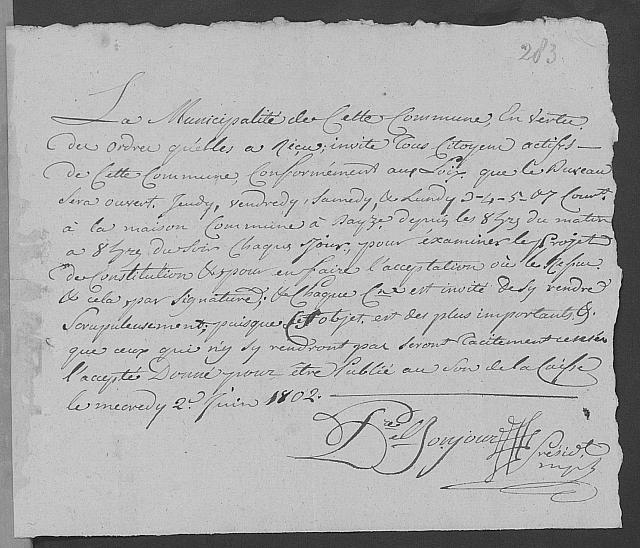 283
La Municipalité de Cette Commune, En Vertu
des ordres qu'elles a Reçu; invite Tous Citoyens actifs
de Cette Commune, Conformément aux Loix, que le Bureau
sera ouvert, Jeudy, vendredy, Samedy, & Lundy 3-4-5-&7 Courtt
à la maison Commune à depuis les 8 hres du matin
a 8 hres du Soir Chaque Jour, pour examiner le Projet
de Constitution & pour en faire l'acceptation où le Refus
& cela par signature, & Chaque Cen est invité de sy rendre
Scrupuleusement, puisque Cett objet, est des plus importants, &
que ceux qui n'y sy rendront pas seront Tacitement censés
l'accepté Donné pour être Publié au Son de la Caisse
le mecredy 2e Juin 1802.
Del Bonjour Présidt